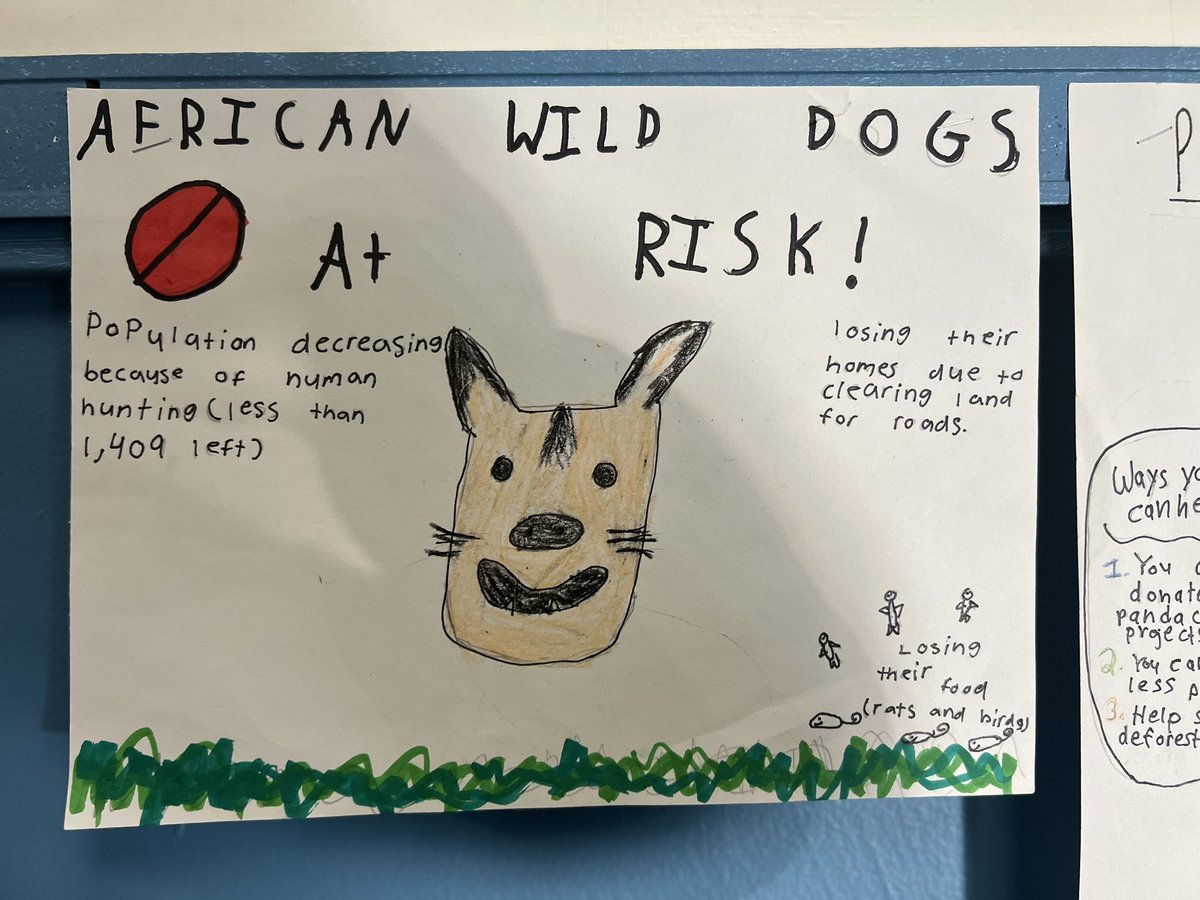 AFRICAN WILD DOGS
At RISK!
Population decreasing
because of human
hunting (less than
1,409 left)
losing their
homes due to
clearing land
for roads.
Losing
their
food
(rats and birds)
P
Ways yo
can he
1. You c
donate
panda c
prgects
2. You can
less p
3. Help s
deforest